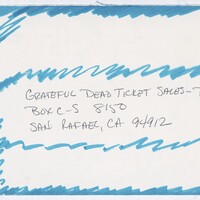 GRATEFUL DEAD TICKET SALES-T
BOX C-S 8150
SAN RAFAEL, CA 94912